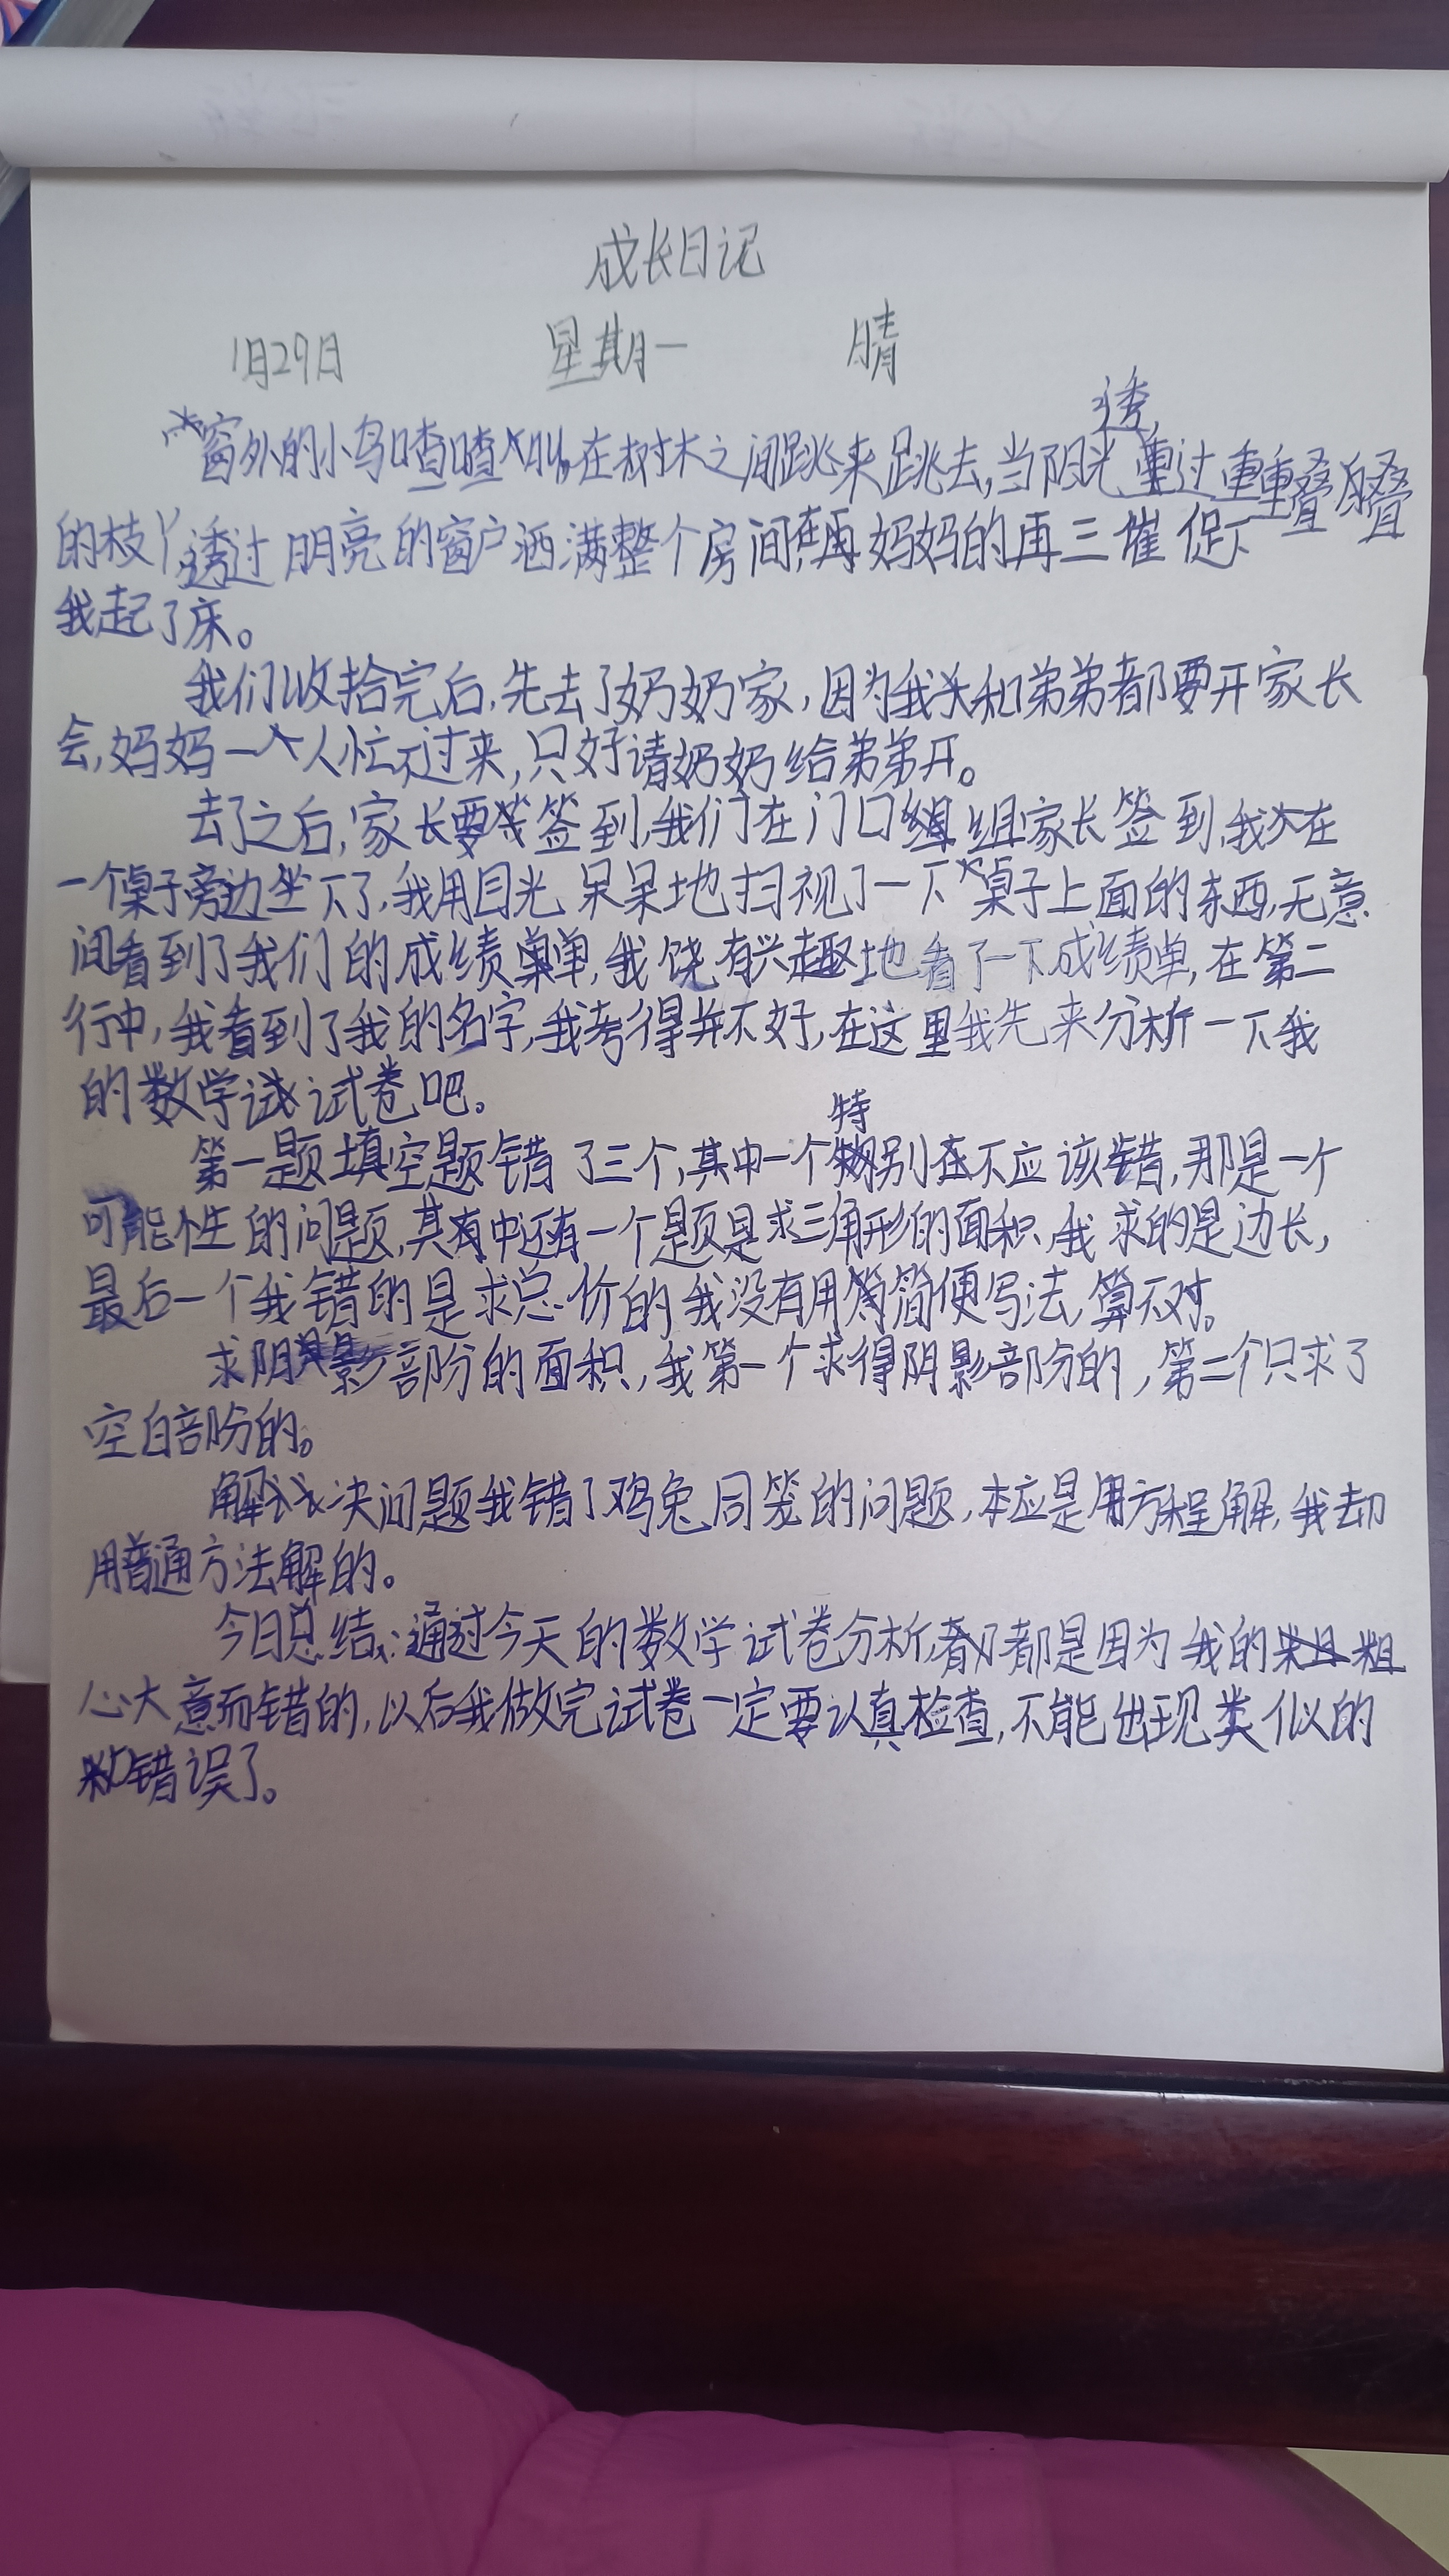 成长日记
1月29日 星期一 晴
窗外的小鸟喳喳叫,在树木之间跳来跳去,当阳光透过重重叠叠
的枝丫,透过明亮的窗户洒满整个房间,在妈妈的再三催促下
我起了床。
我们收拾完后,先去了奶奶家,因为我和弟弟都要开家长
会,妈妈一个人忙不过来,只好请奶奶给弟弟开。
去了之后,家长要签到,我们在门口组组家长签到,我在
一个桌子旁边坐下了,我用目光呆呆地扫视了一下桌子上面的东西,无意
间看到了我们的成绩单,我饶有兴趣地看了一下成绩单,在第二
行中,我看到了我的名字,我考得并不好,在这里我先来分析一下我
的数学试卷吧。
第一题填空题错了三个,其中一个特别不应该错,那是一个
可能性的问题,其中还有一个题是求三角形的面积,我求的是边长,
最后一个我错的是求总价的我没有用简便写法,算不对。
求阴影部分的面积,我第一个求得阴影部分的,第二个只求了
空白部份的。
解决问题我错了鸡兔同笼的问题,本应是用方程解,我却
用普通方法解的。
今日总结:通过今天的数学试卷分析,都是因为我的粗
心大意而错的,以后我做完试卷一定要认真检查,不能出现类似的
错误了。